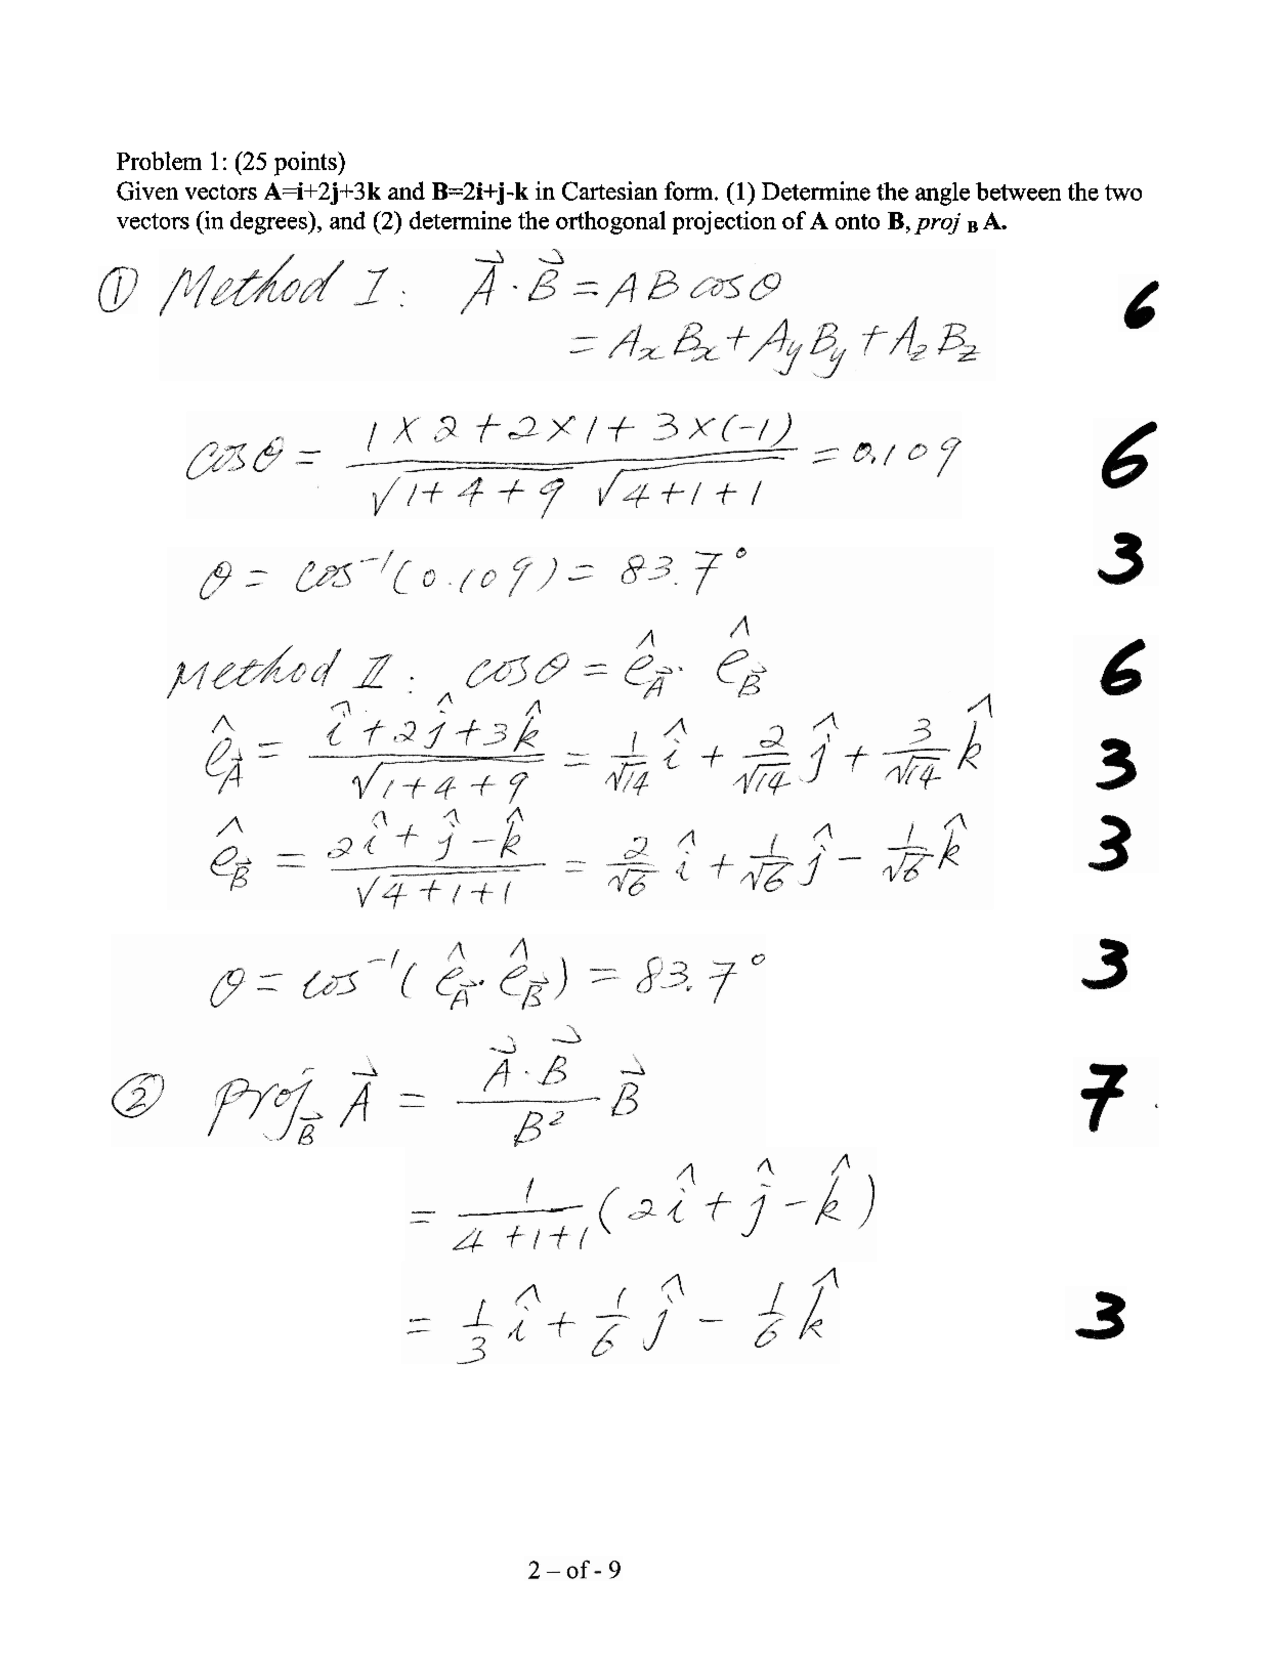 Problem 1: (25 points)
Given vectors A=i+2j+3k and B=2i+j-k in Cartesian form. (1) Determine the angle between the two
vectors (in degrees), and (2) determine the orthogonal projection of A onto B, proj B A.
① Method I: A⃗ · B⃗ = A B cosθ 6
= AxBx + AyBy + AzBz
cosθ = (1×2+2×1+3×(-1))/(√(1+4+9) √(4+1+1)) = 0.109 6
θ = cos⁻¹(0.109) = 83.7° 3
Method II: cosθ = ê_A⃗ · ê_B⃗ 6
ê_A⃗ = (î+2ĵ+3k̂)/√(1+4+9) = 1/√14 î + 2/√14 ĵ + 3/√14 k̂ 3
ê_B⃗ = (2î+ĵ-k̂)/√(4+1+1) = 2/√6 î + 1/√6 ĵ - 1/√6 k̂ 3
θ = cos⁻¹(ê_A⃗ · ê_B⃗) = 83.7° 3
② Proj_B⃗ A⃗ = (A⃗ · B⃗)/B² B⃗ 7
= 1/(4+1+1) (2î+ĵ-k̂)
= 1/3 î + 1/6 ĵ - 1/6 k̂ 3
2 – of - 9